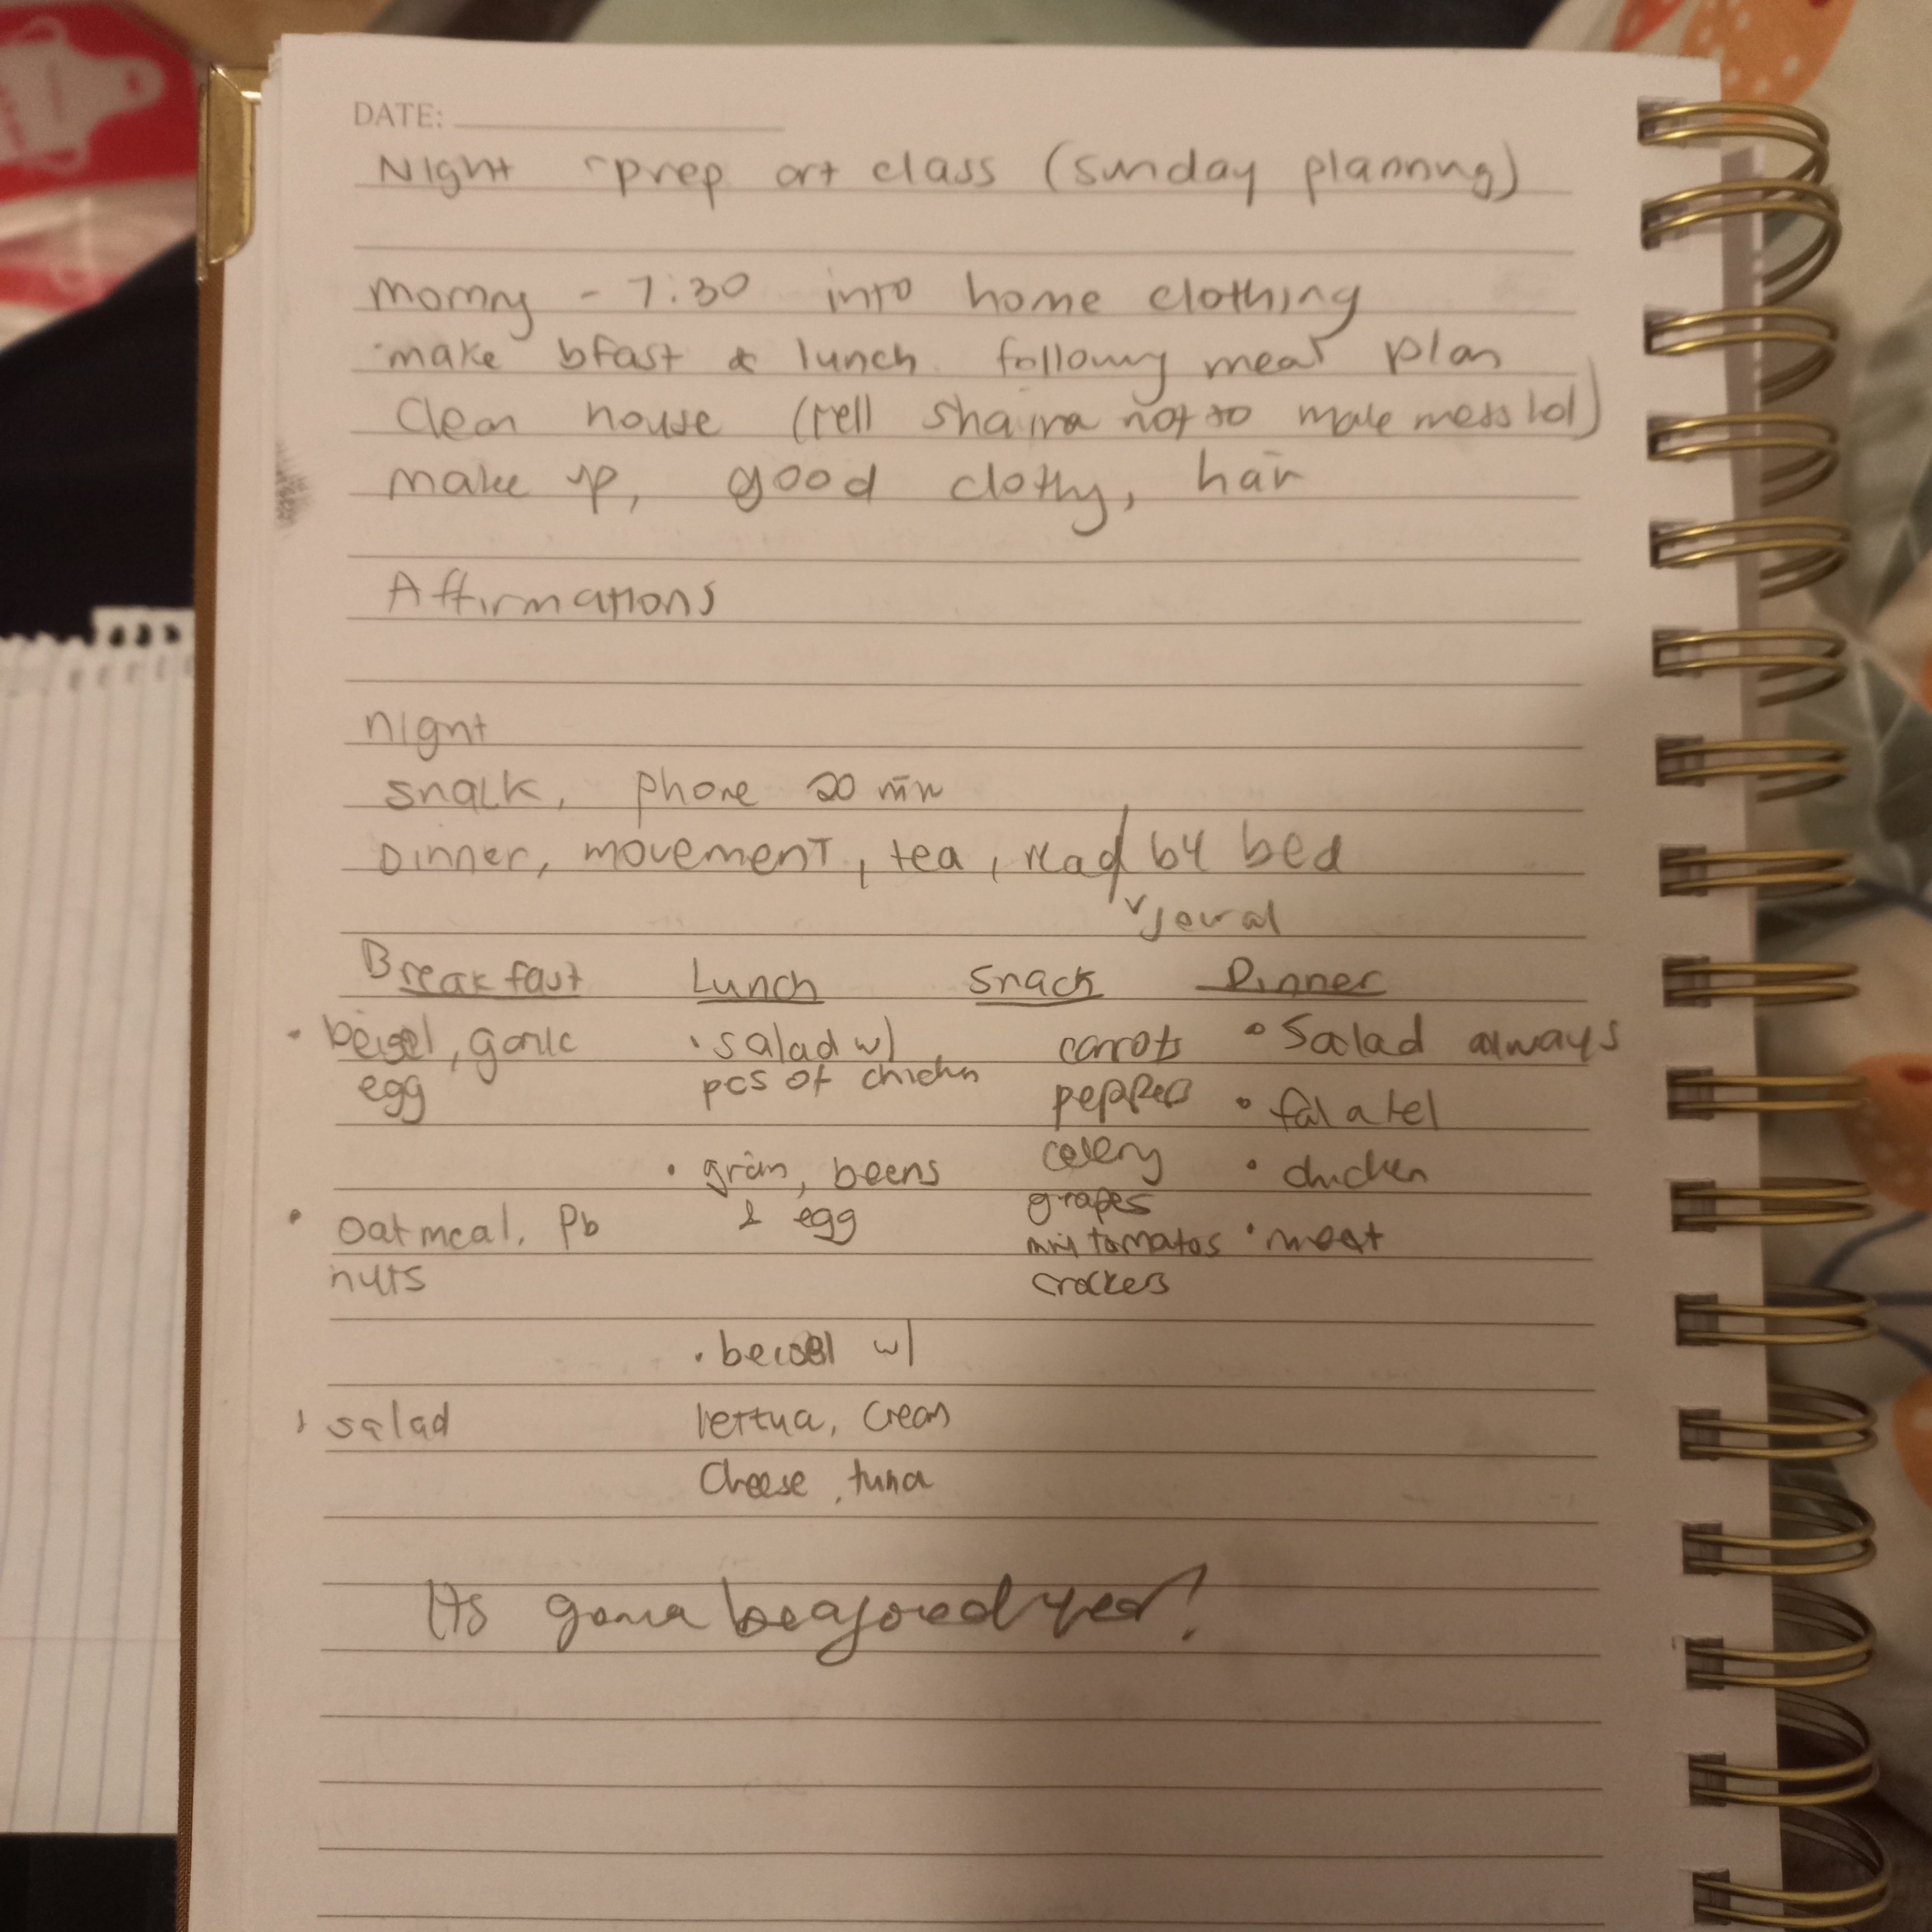 DATE:
Night - prep art class (sunday planning)
morning - 7:30 into home clothing
make bfast & lunch following meal plan
Clean house (tell not to make mess lol)
make up, good clothing, hair
Affirmations
night
snack, phone 20 min
Dinner, movement, tea, read b4 bed
journal
Breakfast Lunch Snack Dinner
• beigel, garlic • salad w/ carrots • Salad always
egg pcs of chicken peppers • falafel
• grain, beens celery • chicken
• oatmeal, pb & egg grapes
mini tomatos • meat
nuts crackers
• beigel w/
• salad lettuce, cream
cheese, tuna
Its gonna be a good year!